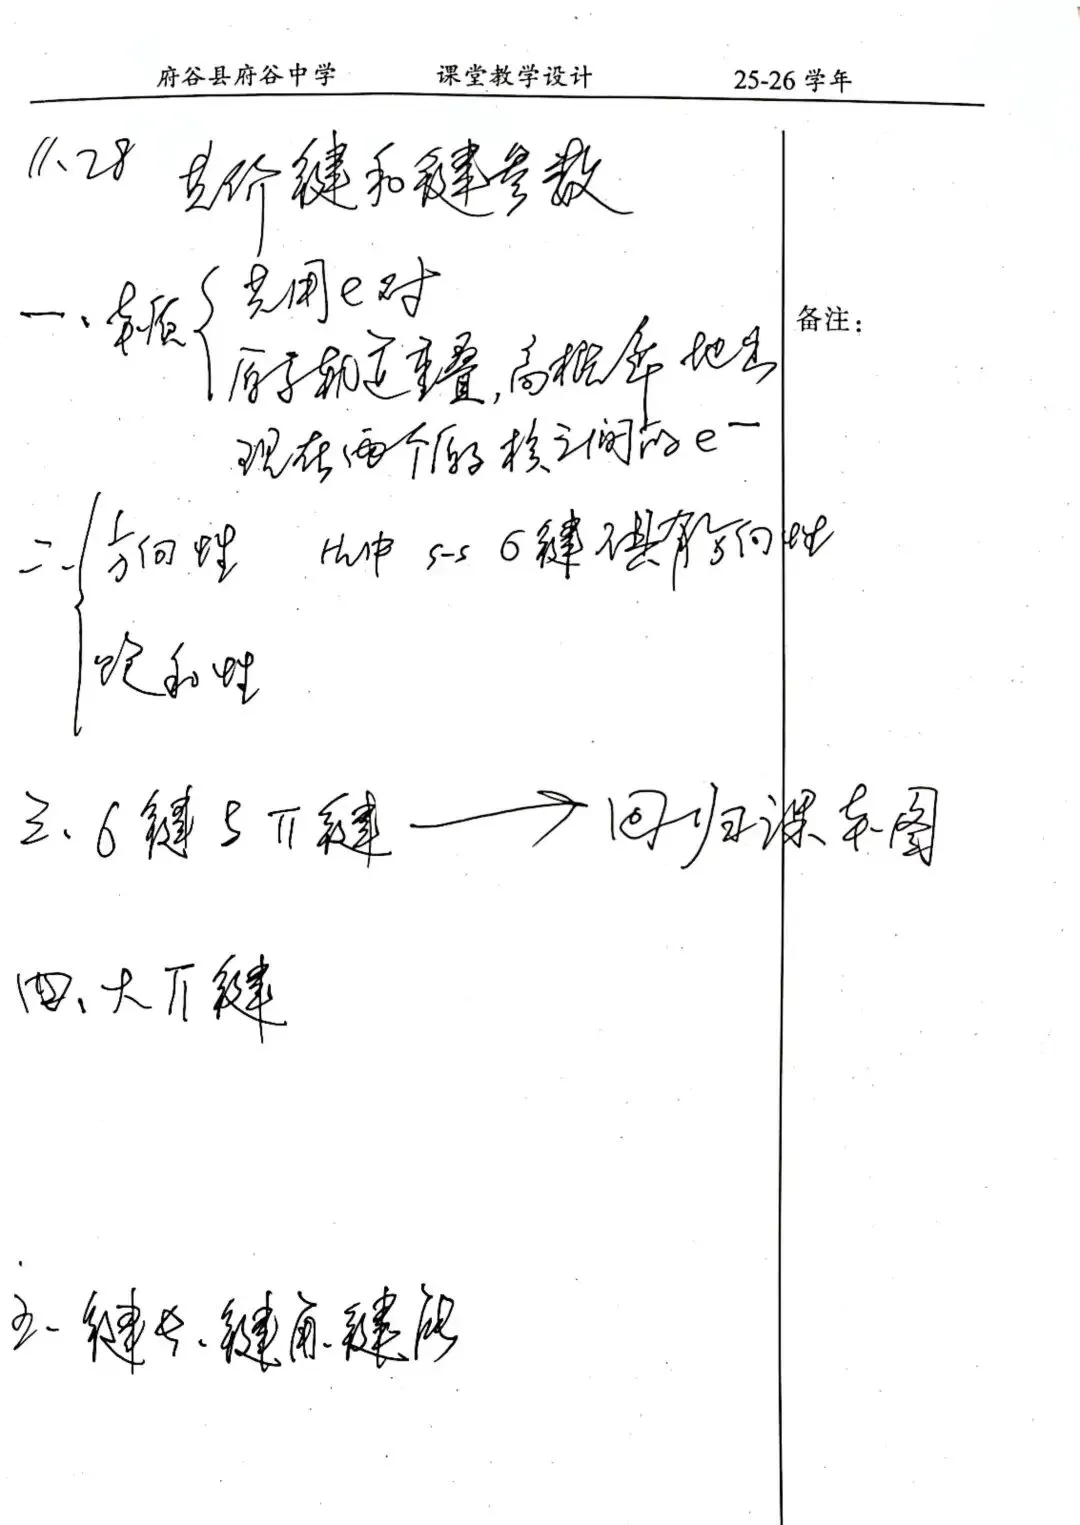 府谷县府谷中学 课堂教学设计 25-26 学年
11、28 共价键和键参数
备注：
一、本质 { 共用e对
原子轨道重叠，高概率地出
现在两个原子核之间的e⁻
二、{ 方向性 H₂中 s-s σ键不具有方向性
饱和性
三、σ键与π键 → 回归课本图
四、大π键
五、键长、键角、键能